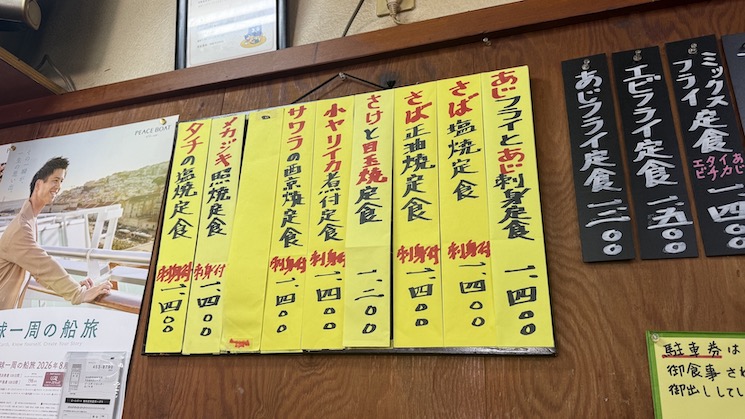 ミックスフライ定食
エビ
タチ
イカ
あじ
一、四〇〇
エビフライ定食 一、五〇〇
あじフライ定食 一、三〇〇
あじフライとあじ刺身定食 一、四〇〇
さば塩焼定食 刺身付 一、四〇〇
さば正油焼定食 刺身付 一、四〇〇
さけと目玉焼定食 一、三〇〇
小ヤリイカ煮付定食 刺身付 一、四〇〇
サワラの西京焼定食 刺身付 一、四〇〇
メカジキ照焼定食 刺身付 一、四〇〇
タチの塩焼定食 刺身付 一、四〇〇
PEACE BOAT
球一周の船旅
2026年8月
駐車券は
御食事さ
御出しし